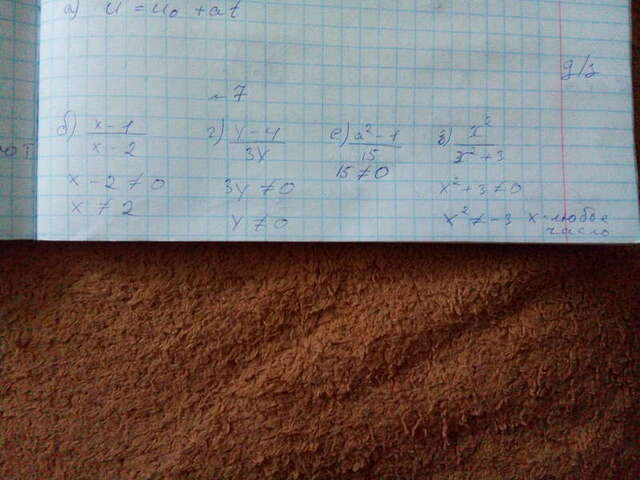 а) u = u₀ + at
д/з
№ 7
б) x - 1 / x - 2
x - 2 ≠ 0
x ≠ 2
г) y - 4 / 3y
3y ≠ 0
y ≠ 0
е) a² - 1 / 15
15 ≠ 0
x² + 3
x² + 3 ≠ 0
x² ≠ -3 x - любое
число